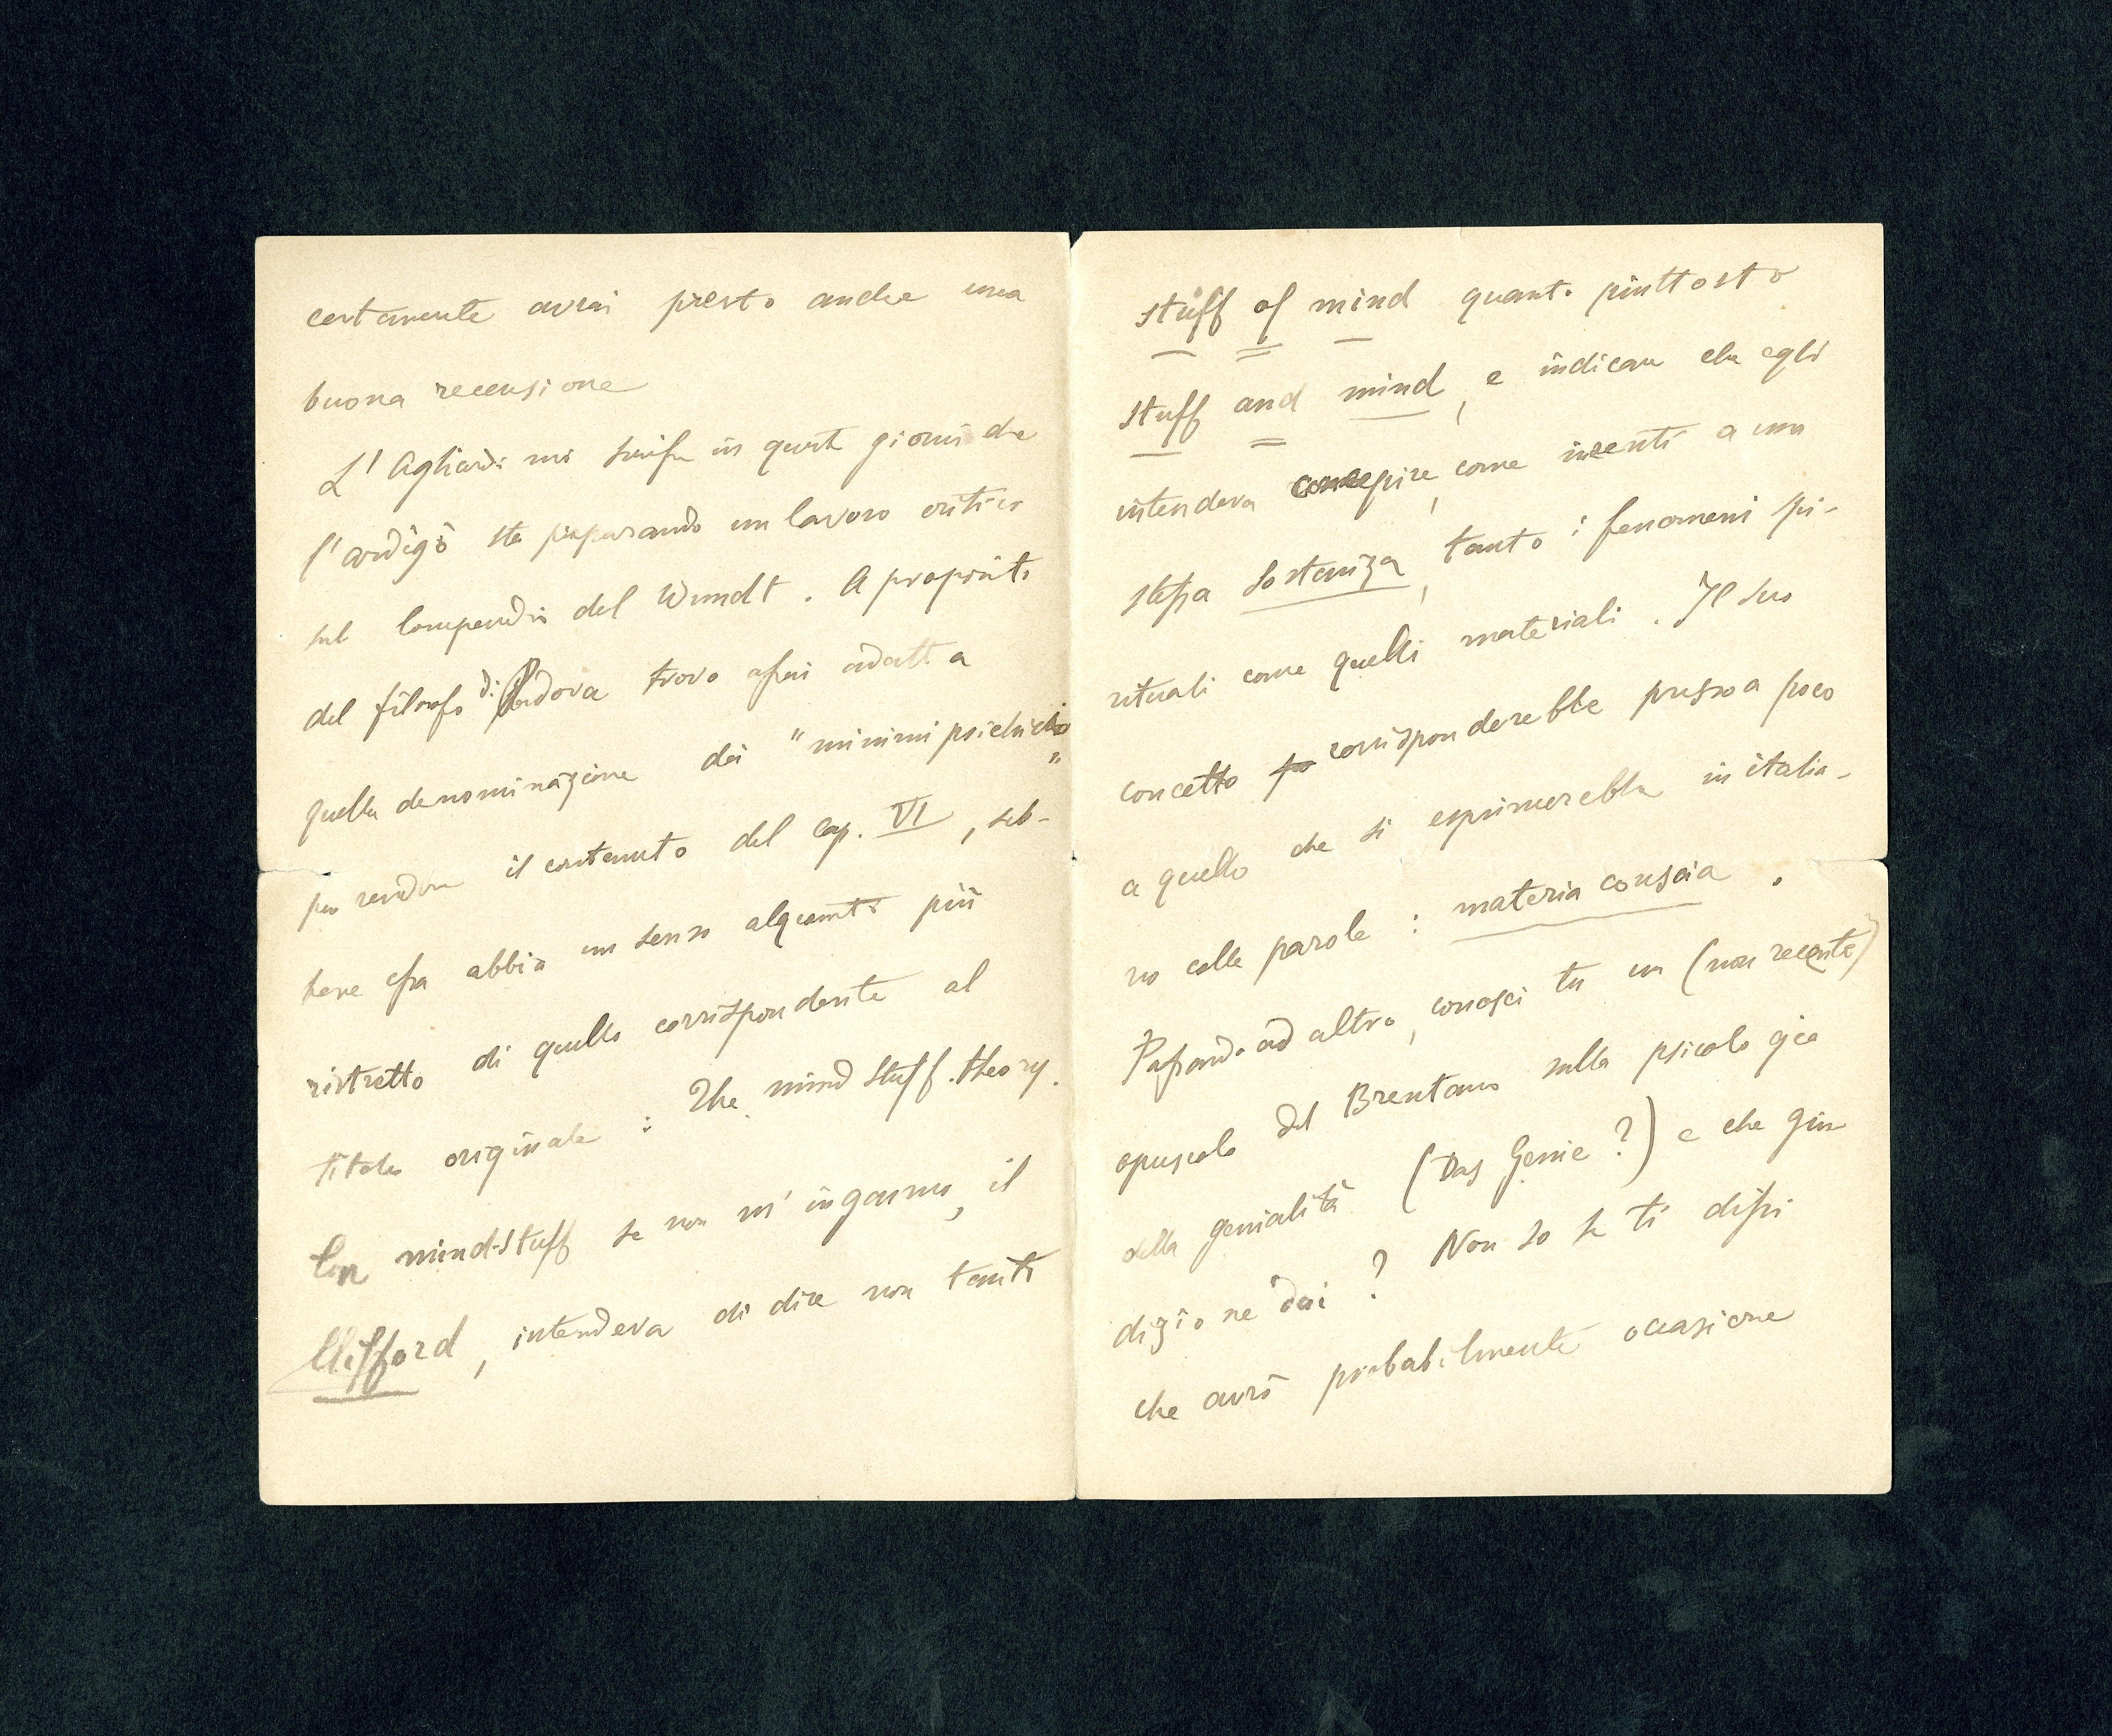 certamente avrai presto anche una
buona recensione
L'Agliardi mi scrisse in questi giorni che
l'Ardigò sta preparando un lavoro critico
sul Compendio del Wundt. A proposito
del filosofo di Padova trovo assai adatta
quella denominazione dei "minimi psichici"
per rendere il contenuto del cap. VI, seb-
bene essa abbia un senso alquanto più
ristretto di quello corrispondente al
titolo originale: The mind stuff. theory.
Con mind-stuff se non m'inganno, il
Clifford, intendeva di dire non tanto
stuff of mind quanto piuttosto
stuff and mind, e indicare che egli
intendeva concepire, come inerenti a una
stessa sostanza, tanto i fenomeni spi-
rituali come quelli materiali. Il suo
concetto corrisponderebbe presso a poco
a quello che si esprimerebbe in italia-
no colle parole: materia conscia.
Passando ad altro, conosci tu un (non recente)
opuscolo del Brentano sulla psicologia
della genialità (Das Genie?) e che giu-
dizio ne dai? Non so se ti dissi
che avrò probabilmente occasione